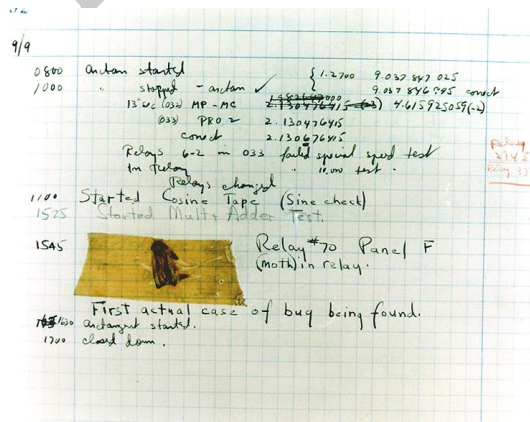 9/9
0800 arctan started { 1.2700 9.037 847 025
1000 " stopped - arctan ✓ 9.037 846 995 correct
13"uc (032) MP - MC 2.130476415 (-3) 4.615925059(-2)
(033) PRO 2 2.130476415
correct 2.130676415
Relays 6-2 in 033 failed special speed test
in Relay " 10.000 test.
Relay
2145
Relay 33
Relays changed
1100 Started Cosine Tape (Sine check)
1525 Started Mult+ Adder Test.
1545 Relay #70 Panel F
(moth) in relay.
First actual case of bug being found.
1630 arctangent started.
1700 closed down.